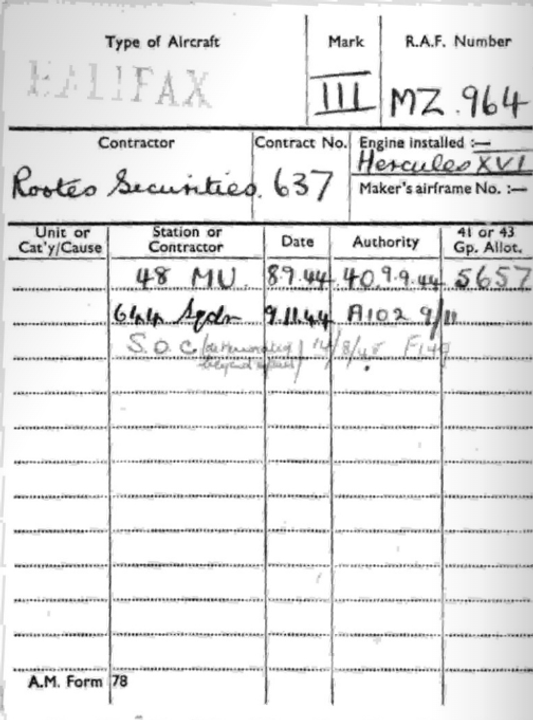 Type of Aircraft Mark R.A.F. Number
HALIFAX III MZ.964
Contractor Contract No. Engine installed :—
Hercules XVI
Rootes Securities. 637 Maker's airframe No. :—
Unit or Cat'y/Cause Station or Contractor Date Authority 41 or 43 Gp. Allot.
48 MU 8.9.44 40.9.9.44 5657
644 Sqdn 9.11.44 A102 9/11
S.O.C. beyond /8/45
A.M. Form 78